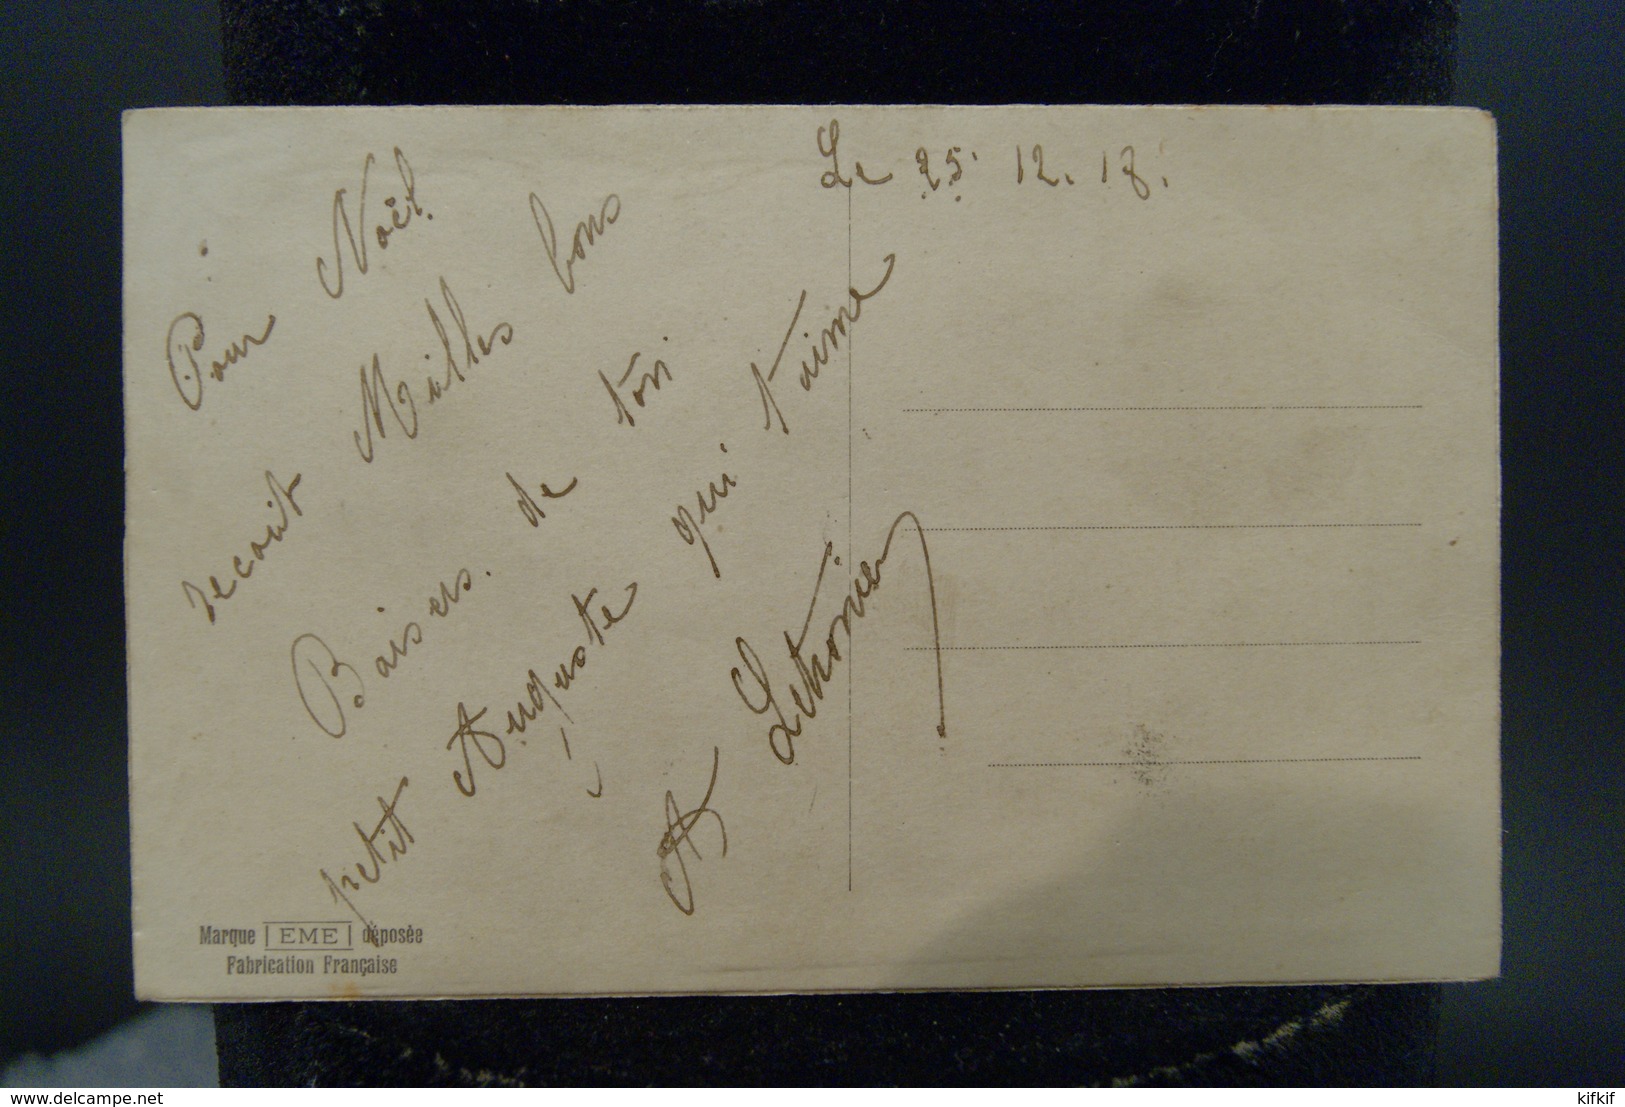 Le 25. 12. 18.
Pour Noël.
recoit Milles bons
Baisers. de ton
petit Auguste qui t'aime
A Letronier
Marque EME déposée
Fabrication Française
www.delcampe.net
kifkif